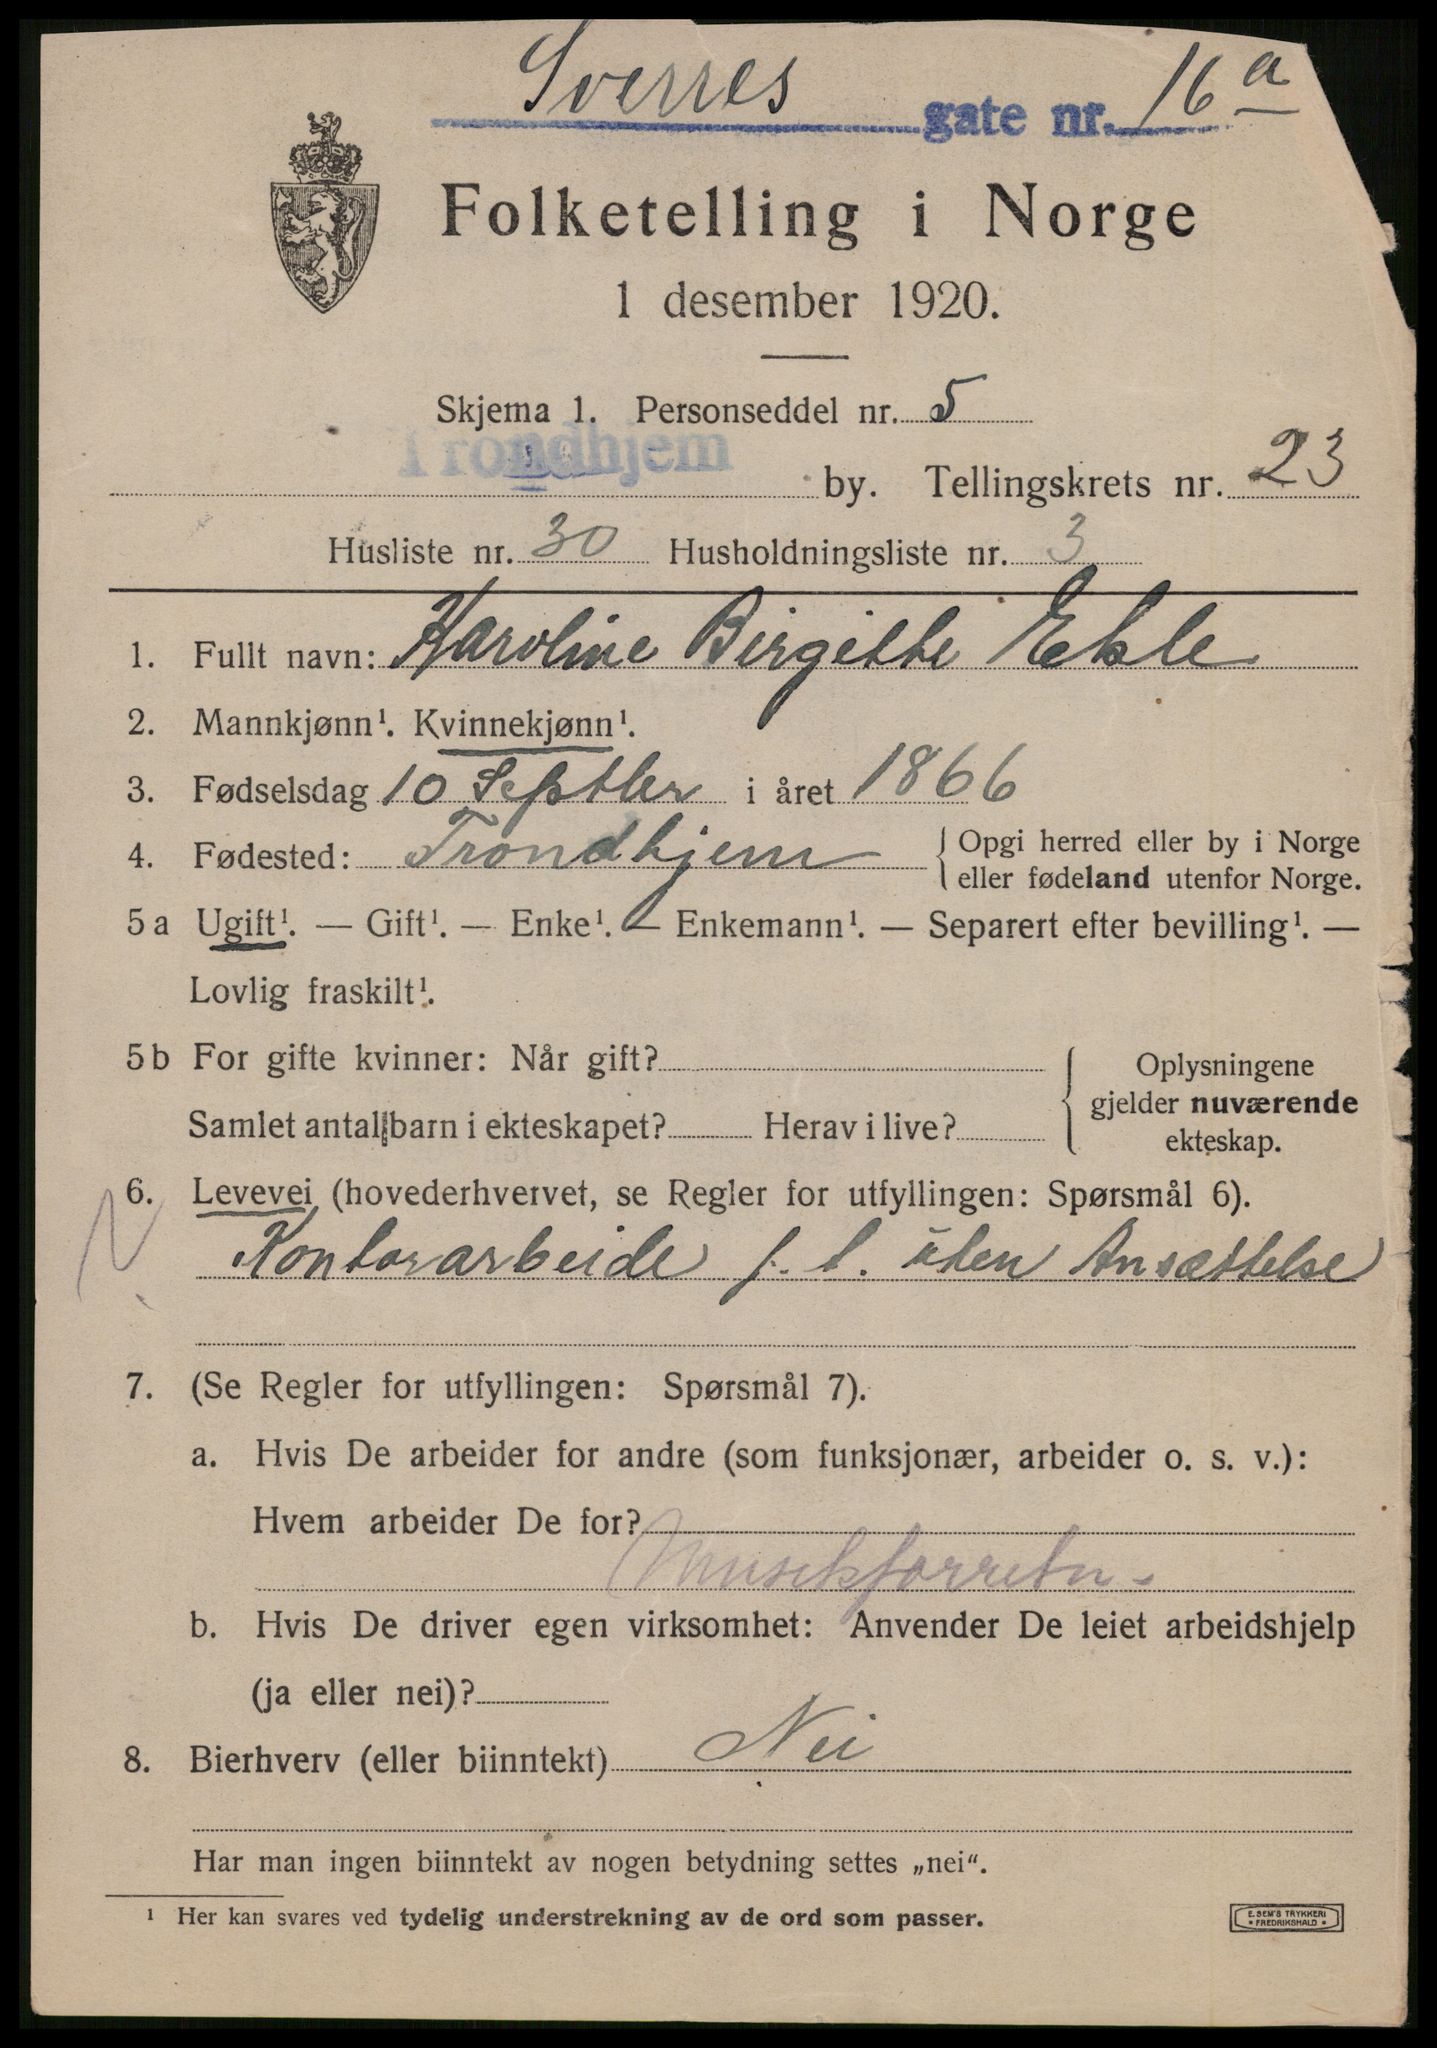 Sverres gate nr. 16 a
Folketelling i Norge
1 desember 1920.
Skjema 1. Personseddel nr. 5
Trondhjem by. Tellingskrets nr. 23
Husliste nr. 30 Husholdningsliste nr. 3
1. Fullt navn: Karoline Birgitte Ekle
2. Mannkjønn¹. Kvinnekjønn¹.
3. Fødselsdag 10 Septber i året 1866
4. Fødested: Trondhjem { Opgi herred eller by i Norge
eller fødeland utenfor Norge.
5 a Ugift¹. — Gift¹. — Enke¹. — Enkemann¹. — Separert efter bevilling¹. —
Lovlig fraskilt¹.
5 b For gifte kvinner: Når gift?
Samlet antal barn i ekteskapet? Herav i live?
{ Oplysningene
gjelder nuværende
ekteskap.
6. Levevei (hovederhvervet, se Regler for utfyllingen: Spørsmål 6).
N.
Kontorarbeide f. t. uten Ansættelse
7. (Se Regler for utfyllingen: Spørsmål 7).
a. Hvis De arbeider for andre (som funksjonær, arbeider o. s. v.):
Hvem arbeider De for?
Musikforretn.
b. Hvis De driver egen virksomhet: Anvender De leiet arbeidshjelp
(ja eller nei)?
8. Bierhverv (eller biinntekt) Nei
Har man ingen biinntekt av nogen betydning settes „nei“.
¹ Her kan svares ved tydelig understrekning av de ord som passer.
E. SEM'S TRYKKERI
• FREDRIKSHALD •